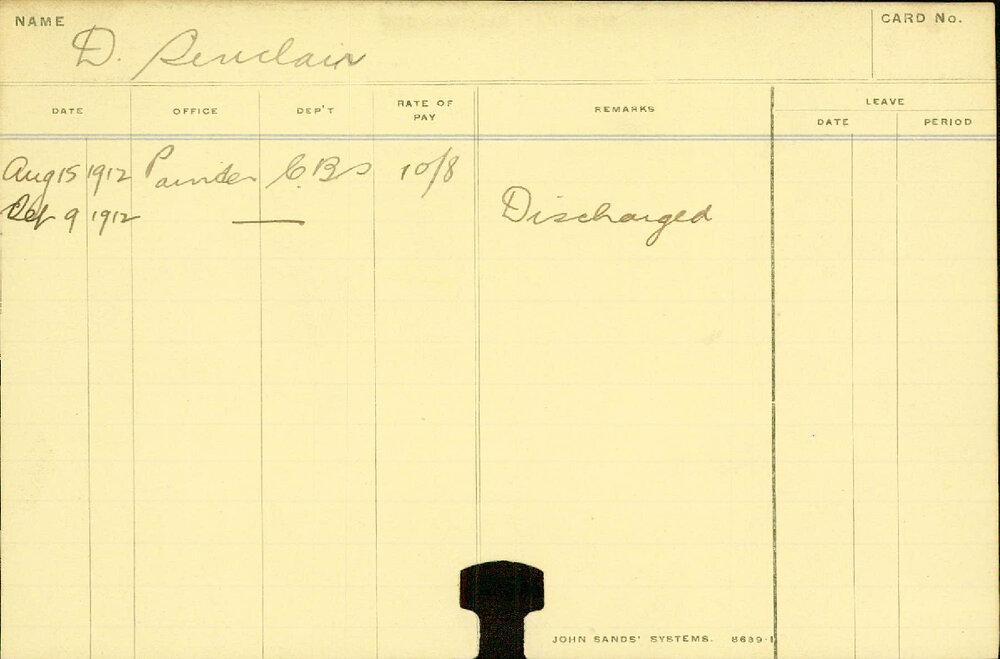 NAME D. Sinclair CARD No.
DATE OFFICE DEP'T RATE OF PAY REMARKS LEAVE
DATE PERIOD
Aug 15 1912 Painter C.B.S 10/8
Sep 9 1912 — Discharged
JOHN SANDS' SYSTEMS. 8639-1